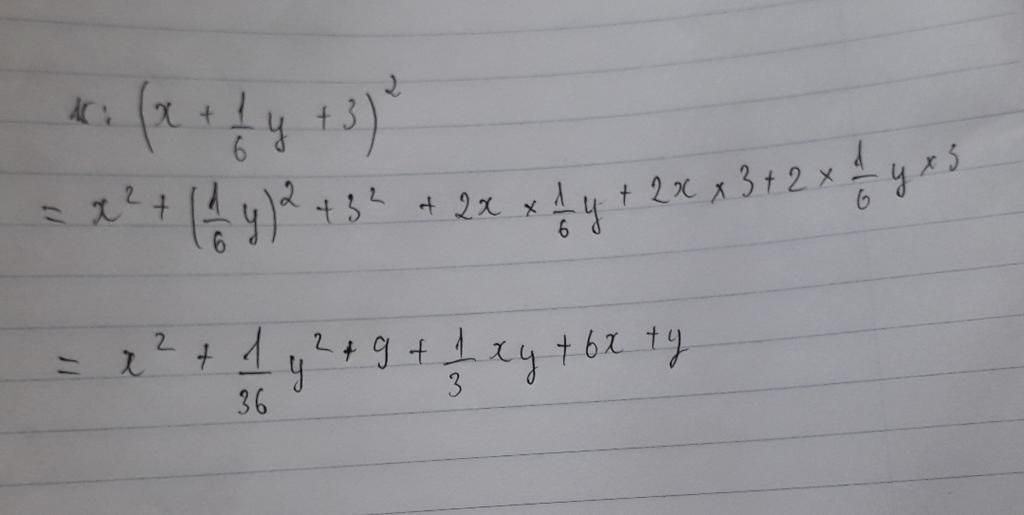 (x + 1/6 y + 3)²
= x² + (1/6 y)² + 3² + 2x × 1/6 y + 2x × 3 + 2 × 1/6 y × 3
= x² + 1/36 y² + 9 + 1/3 xy + 6x + y